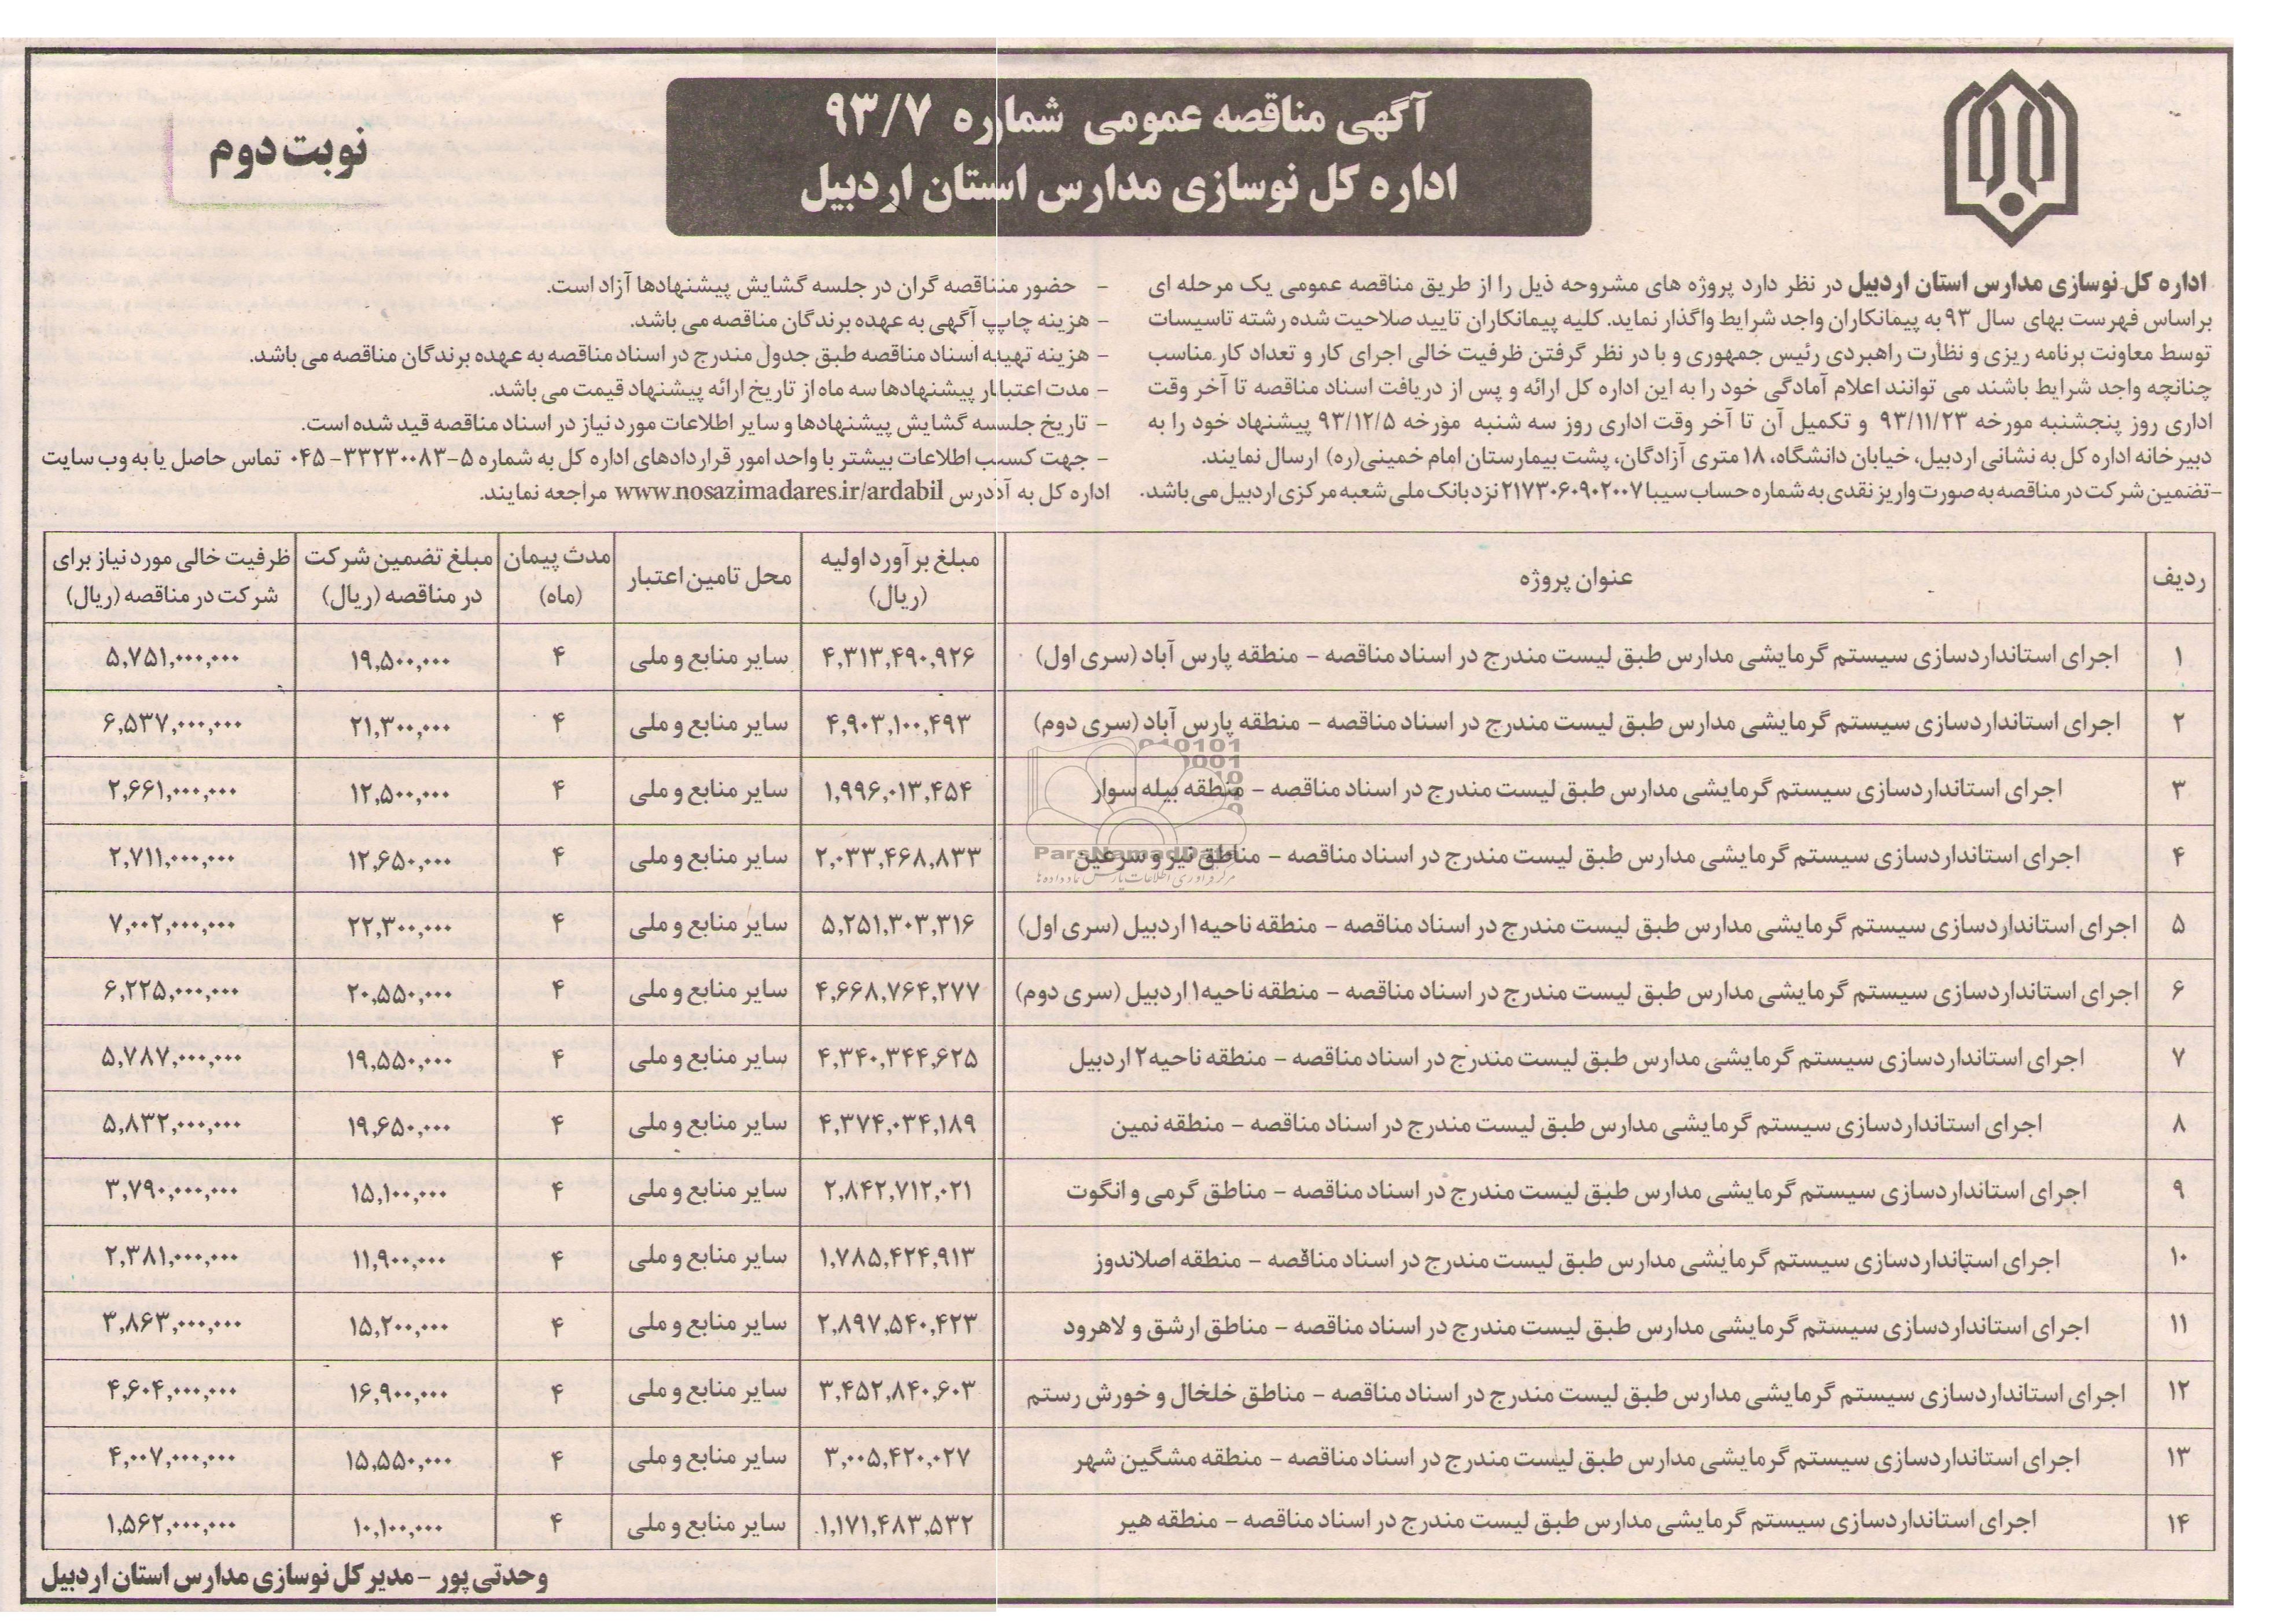 آگهی مناقصه عمومی شماره ۹۳/۷
اداره کل نوسازی مدارس استان اردبیل
نوبت دوم
اداره کل نوسازی مدارس استان اردبیل در نظر دارد پروژه های مشروحه ذیل را از طریق مناقصه عمومی یک مرحله ای
براساس فهرست بهای سال ۹۳ به پیمانکاران واجد شرایط واگذار نماید. کلیه پیمانکاران تایید صلاحیت شده رشته تاسیسات
توسط معاونت برنامه ریزی و نظارت راهبردی رئیس جمهوری و با در نظر گرفتن ظرفیت خالی اجرای کار و تعداد کار مناسب
چنانچه واجد شرایط باشند می توانند اعلام آمادگی خود را به این اداره کل ارائه و پس از دریافت اسناد مناقصه تا آخر وقت
اداری روز پنجشنبه مورخه ۹۳/۱۱/۲۳ و تکمیل آن تا آخر وقت اداری روز سه شنبه مورخه ۹۳/۱۲/۵ پیشنهاد خود را به
دبیرخانه اداره کل به نشانی اردبیل، خیابان دانشگاه، ۱۸ متری آزادگان، پشت بیمارستان امام خمینی(ره) ارسال نمایند.
-تضمین شرکت در مناقصه به صورت واریز نقدی به شماره حساب سیبا ۲۱۷۳۰۶۰۹۰۲۰۰۷ نزد بانک ملی شعبه مرکزی اردبیل می باشد.
- حضور منناقصه گران در جلسه گشایش پیشنهادها آزاد است.
- هزینه چاپ آگهی به عهده برندگان مناقصه می باشد.
- هزینه تهیه اسناد مناقصه طبق جدول مندرج در اسناد مناقصه به عهده برندگان مناقصه می باشد.
- مدت اعتبار پیشنهادها سه ماه از تاریخ ارائه پیشنهاد قیمت می باشد.
- تاریخ جلسه گشایش پیشنهادها و سایر اطلاعات مورد نیاز در اسناد مناقصه قید شده است.
- جهت کسب اطلاعات بیشتر با واحد امور قراردادهای اداره کل به شماره ۵-۳۳۲۳۰۰۸۳-۰۴۵ تماس حاصل یا به وب سایت
اداره کل به آدرس www.nosazimadares.ir/ardabil مراجعه نمایند.
ردیف عنوان پروژه مبلغ برآورد اولیه (ریال) محل تامین اعتبار مدت پیمان (ماه) مبلغ تضمین شرکت در مناقصه (ریال) ظرفیت خالی مورد نیاز برای شرکت در مناقصه (ریال)
۱ اجرای استانداردسازی سیستم گرمایشی مدارس طبق لیست مندرج در اسناد مناقصه - منطقه پارس آباد (سری اول) ۴,۳۱۳,۴۹۰,۹۲۶ سایر منابع و ملی ۴ ۱۹,۵۰۰,۰۰۰ ۵,۷۵۱,۰۰۰,۰۰۰
۲ اجرای استانداردسازی سیستم گرمایشی مدارس طبق لیست مندرج در اسناد مناقصه - منطقه پارس آباد (سری دوم) ۴,۹۰۳,۱۰۰,۴۹۳ سایر منابع و ملی ۴ ۲۱,۳۰۰,۰۰۰ ۶,۵۳۷,۰۰۰,۰۰۰
۳ اجرای استانداردسازی سیستم گرمایشی مدارس طبق لیست مندرج در اسناد مناقصه - منطقه بیله سوار ۱,۹۹۶,۰۱۳,۴۵۴ سایر منابع و ملی ۴ ۱۲,۵۰۰,۰۰۰ ۲,۶۶۱,۰۰۰,۰۰۰
۴ اجرای استانداردسازی سیستم گرمایشی مدارس طبق لیست مندرج در اسناد مناقصه - مناطق نیر و سرعین ۲,۰۳۳,۴۶۸,۸۳۳ سایر منابع و ملی ۴ ۱۲,۶۵۰,۰۰۰ ۲,۷۱۱,۰۰۰,۰۰۰
۵ اجرای استانداردسازی سیستم گرمایشی مدارس طبق لیست مندرج در اسناد مناقصه - منطقه ناحیه۱ اردبیل (سری اول) ۵,۲۵۱,۳۰۳,۳۱۶ سایر منابع و ملی ۴ ۲۲,۳۰۰,۰۰۰ ۷,۰۰۲,۰۰۰,۰۰۰
۶ اجرای استانداردسازی سیستم گرمایشی مدارس طبق لیست مندرج در اسناد مناقصه - منطقه ناحیه۱ اردبیل (سری دوم) ۴,۶۶۸,۷۶۴,۲۷۷ سایر منابع و ملی ۴ ۲۰,۵۵۰,۰۰۰ ۶,۲۲۵,۰۰۰,۰۰۰
۷ اجرای استانداردسازی سیستم گرمایشی مدارس طبق لیست مندرج در اسناد مناقصه - منطقه ناحیه۲ اردبیل ۴,۳۴۰,۳۴۴,۶۲۵ سایر منابع و ملی ۴ ۱۹,۵۵۰,۰۰۰ ۵,۷۸۷,۰۰۰,۰۰۰
۸ اجرای استانداردسازی سیستم گرمایشی مدارس طبق لیست مندرج در اسناد مناقصه - منطقه نمین ۴,۳۷۴,۰۳۴,۱۸۹ سایر منابع و ملی ۴ ۱۹,۶۵۰,۰۰۰ ۵,۸۳۲,۰۰۰,۰۰۰
۹ اجرای استانداردسازی سیستم گرمایشی مدارس طبق لیست مندرج در اسناد مناقصه - مناطق گرمی و انگوت ۲,۸۴۲,۷۱۲,۰۲۱ سایر منابع و ملی ۴ ۱۵,۱۰۰,۰۰۰ ۳,۷۹۰,۰۰۰,۰۰۰
۱۰ اجرای استانداردسازی سیستم گرمایشی مدارس طبق لیست مندرج در اسناد مناقصه - منطقه اصلاندوز ۱,۷۸۵,۴۲۴,۹۱۳ سایر منابع و ملی ۴ ۱۱,۹۰۰,۰۰۰ ۲,۳۸۱,۰۰۰,۰۰۰
۱۱ اجرای استانداردسازی سیستم گرمایشی مدارس طبق لیست مندرج در اسناد مناقصه - مناطق ارشق و لاهرود ۲,۸۹۷,۵۴۰,۴۲۳ سایر منابع و ملی ۴ ۱۵,۲۰۰,۰۰۰ ۳,۸۶۳,۰۰۰,۰۰۰
۱۲ اجرای استانداردسازی سیستم گرمایشی مدارس طبق لیست مندرج در اسناد مناقصه - مناطق خلخال و خورش رستم ۳,۴۵۲,۸۴۰,۶۰۳ سایر منابع و ملی ۴ ۱۶,۹۰۰,۰۰۰ ۴,۶۰۴,۰۰۰,۰۰۰
۱۳ اجرای استانداردسازی سیستم گرمایشی مدارس طبق لیست مندرج در اسناد مناقصه - منطقه مشگین شهر ۳,۰۰۵,۴۲۰,۰۲۷ سایر منابع و ملی ۴ ۱۵,۵۵۰,۰۰۰ ۴,۰۰۷,۰۰۰,۰۰۰
۱۴ اجرای استانداردسازی سیستم گرمایشی مدارس طبق لیست مندرج در اسناد مناقصه - منطقه هیر ۱,۱۷۱,۴۸۳,۵۳۲ سایر منابع و ملی ۴ ۱۰,۱۰۰,۰۰۰ ۱,۵۶۲,۰۰۰,۰۰۰
ParsNamadData
وحدتی پور - مدیر کل نوسازی مدارس استان اردبیل